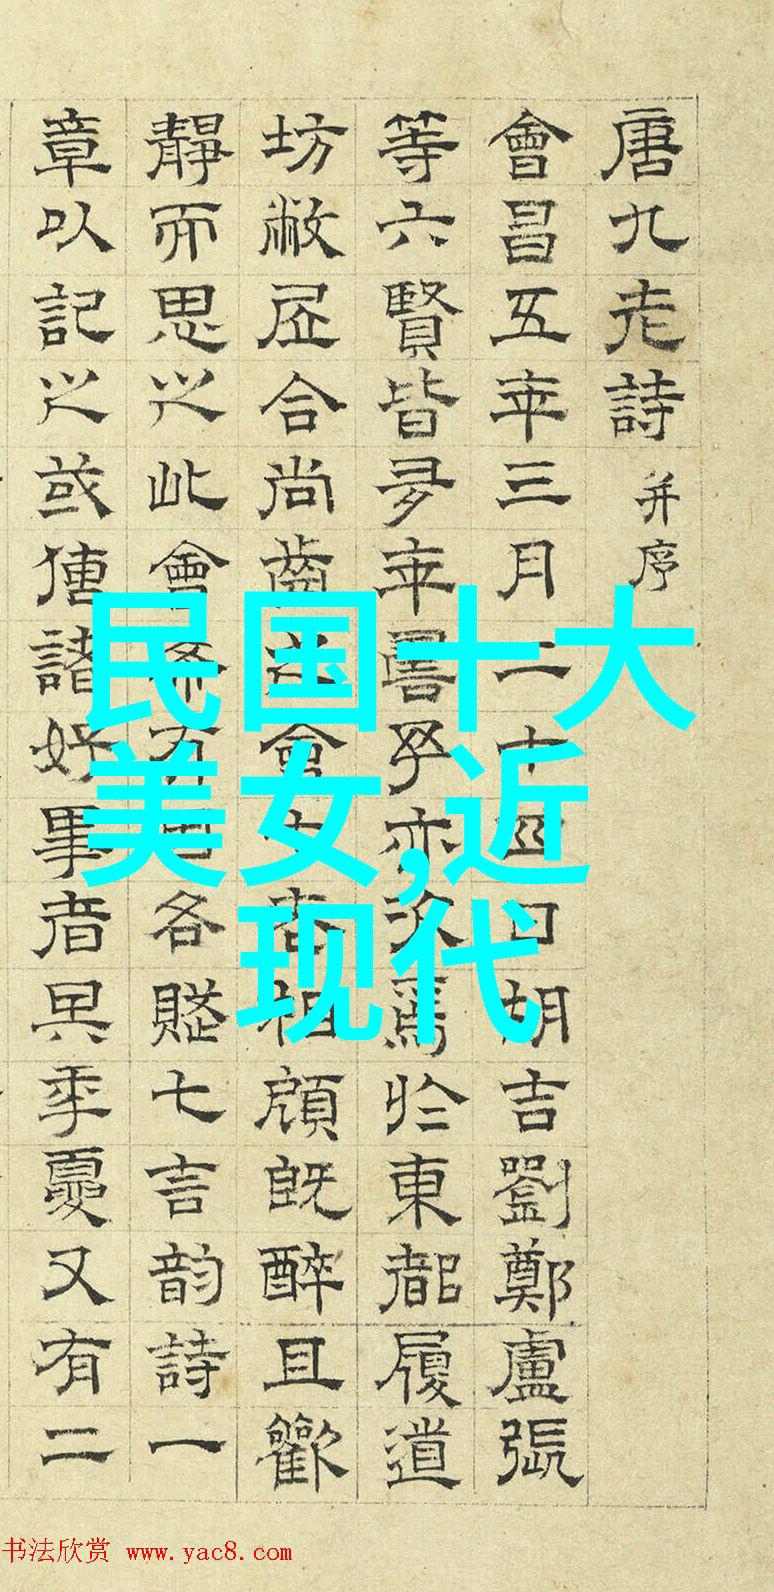 唐九老詩并序
會昌五年三月二十四日胡吉劉鄭盧張
等六賢皆多年壽予亦次焉於東都履道
坊敝居合尚齒之會七老相顧既醉且歡
靜而思之此會希有因各賦七言韵詩一
章以記之或傳諸好事者其年夏又有二
民国十大
美女,近
现代
书法欣赏 www.yac8.com